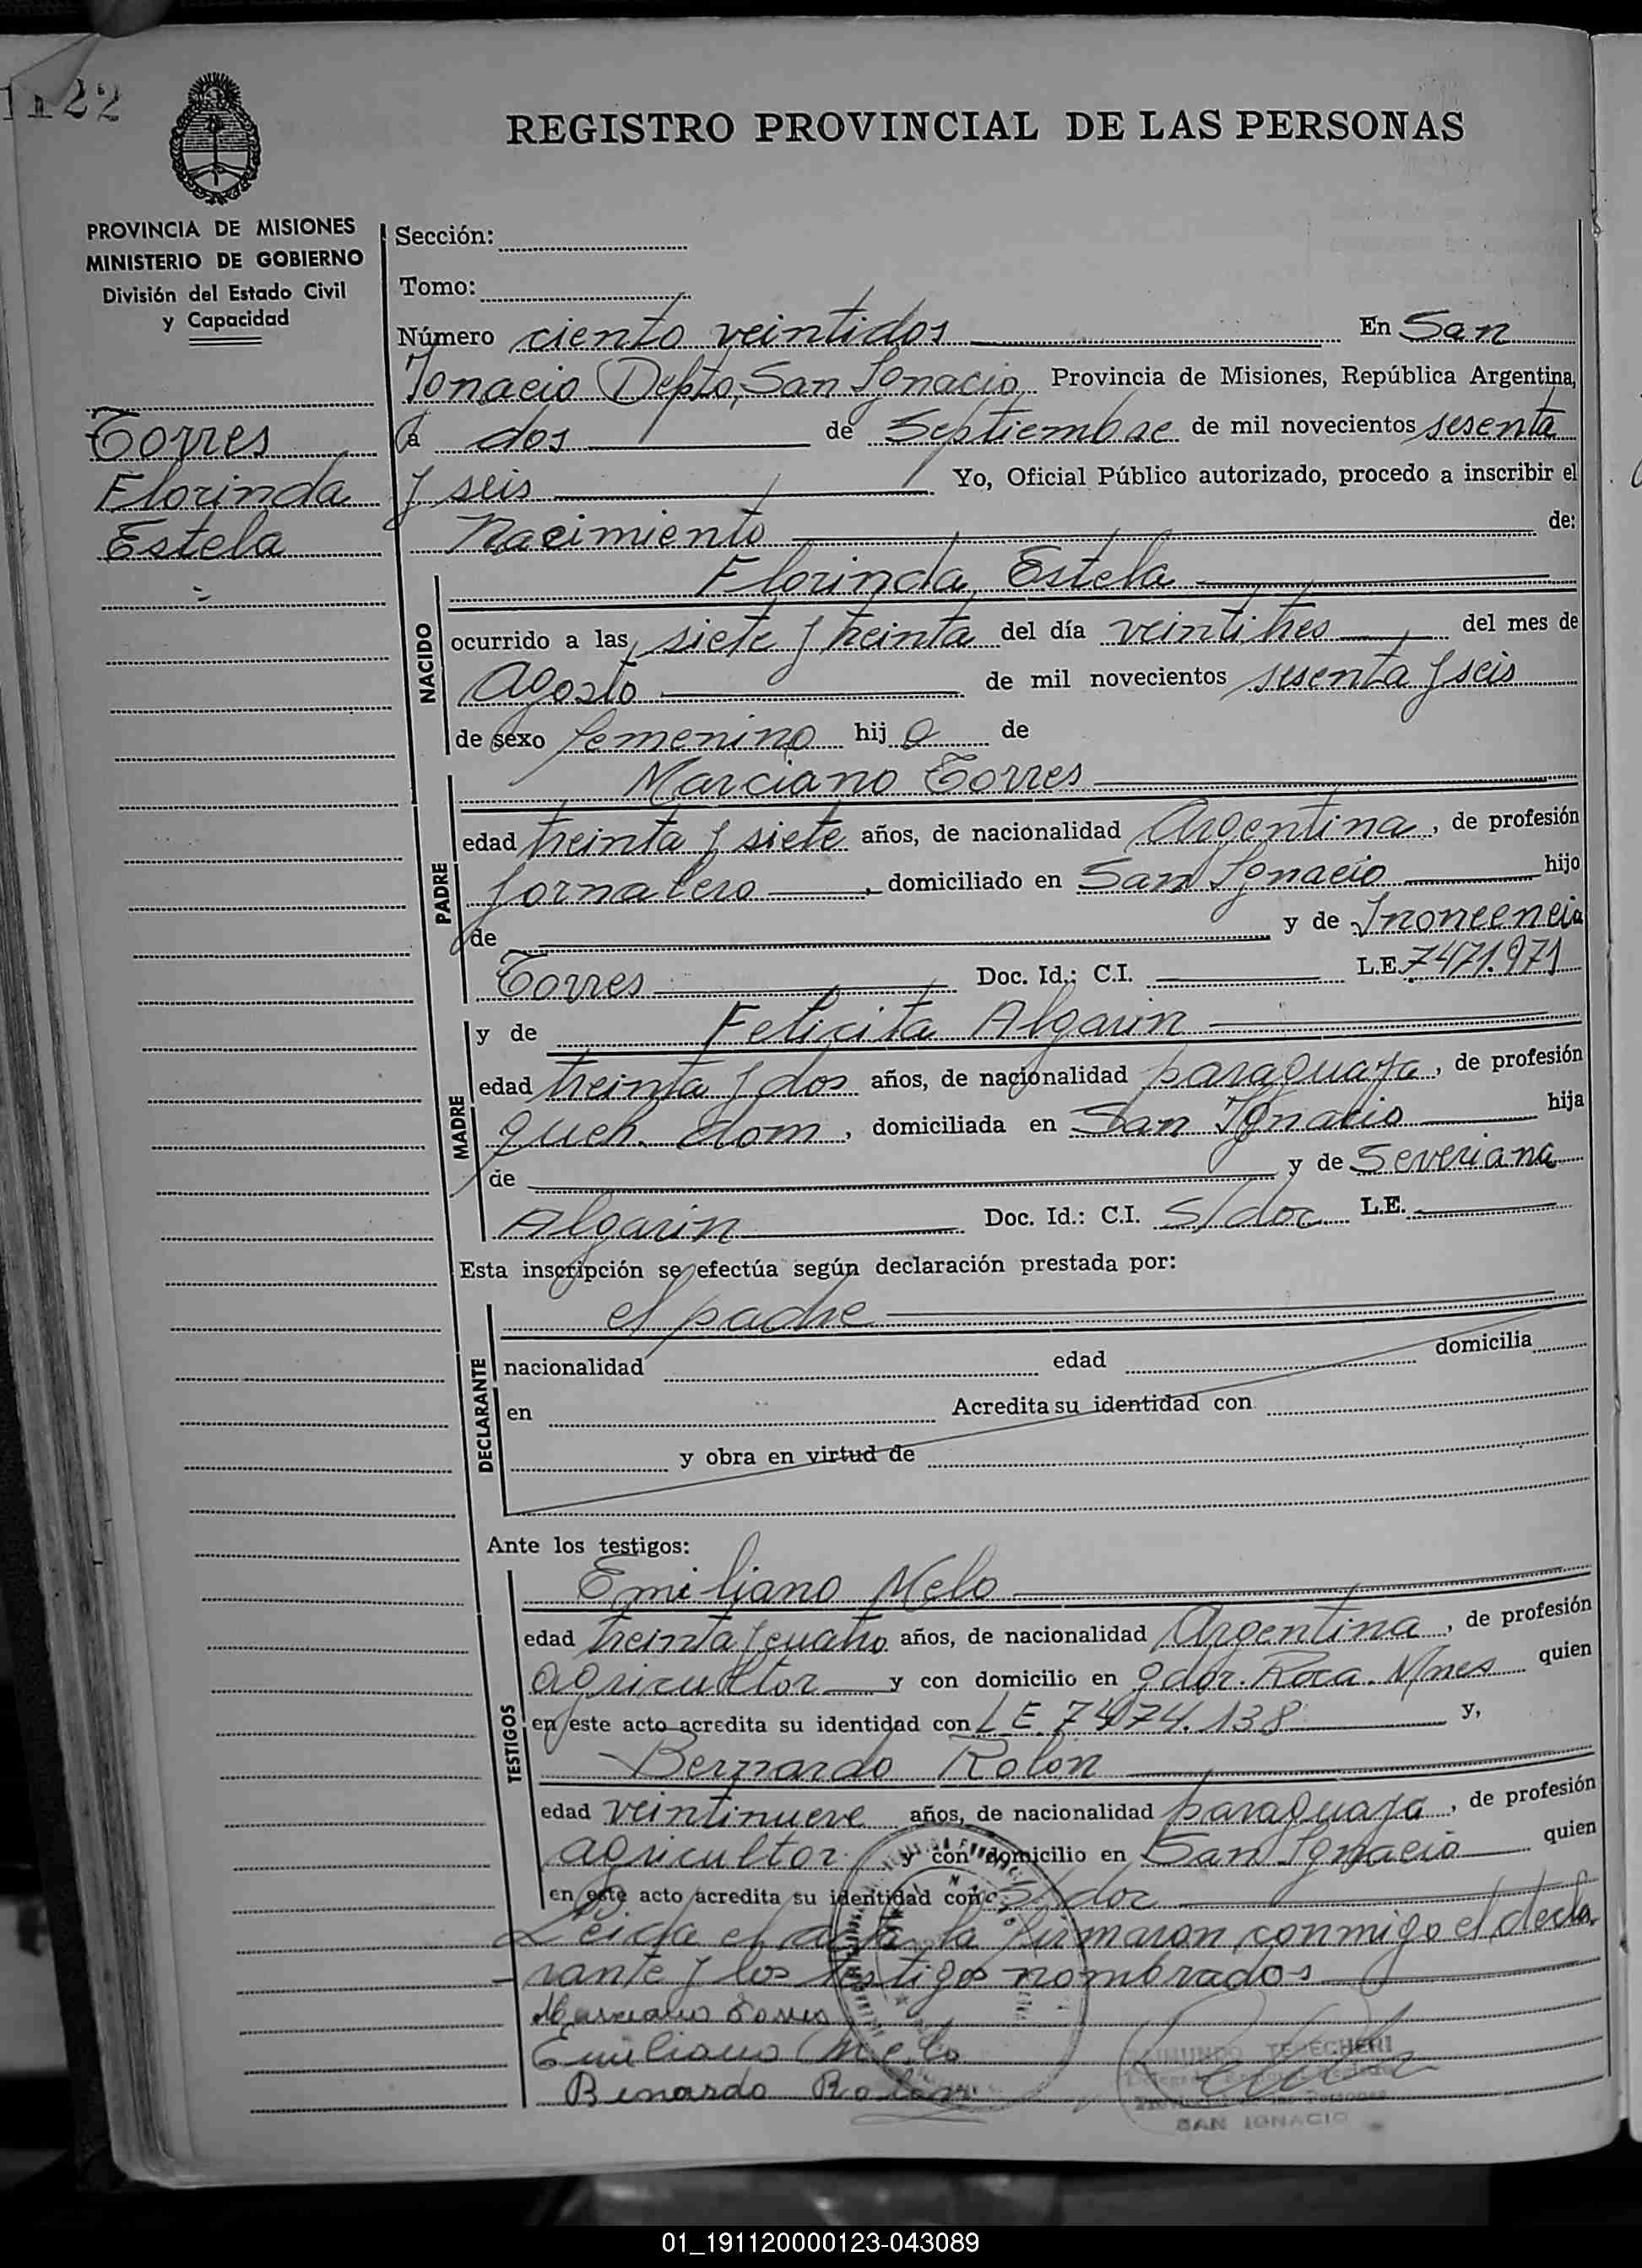 122
REGISTRO PROVINCIAL DE LAS PERSONAS
PROVINCIA DE MISIONES
MINISTERIO DE GOBIERNO
División del Estado Civil
y Capacidad
Torres
Florinda
Estela
Sección:
Tomo:
Número ciento veintidos En San
Ignacio Depto, San Ignacio Provincia de Misiones, República Argentina,
a dos de Septiembre de mil novecientos sesenta
y seis Yo, Oficial Público autorizado, procedo a inscribir el
Nacimiento de:
NACIDO
Florinda Estela
ocurrido a las siete y treinta del día veintitres del mes de
Agosto de mil novecientos sesenta y seis
de sexo femenino hij a de
PADRE
Marciano Torres
edad treinta y siete años, de nacionalidad Argentina, de profesión
jornalero, domiciliado en San Ignacio hijo
de y de Inoncencia
Torres Doc. Id.: C.I. L.E. 7471.971
MADRE
y de Felicita Algarin
edad treinta y dos años, de nacionalidad paraguaya, de profesión
queh. dom, domiciliada en San Ignacio hija
de y de Severiana
Algarin Doc. Id.: C.I. S/doc L.E.
Esta inscripción se efectúa según declaración prestada por:
DECLARANTE
el padre
nacionalidad edad domicilia
en Acredita su identidad con
y obra en virtud de
Ante los testigos:
TESTIGOS
Emiliano Melo
edad treinta y cuatro años, de nacionalidad Argentina, de profesión
agricultor y con domicilio en gdor. Roca. Mnes quien
en este acto acredita su identidad con L E 7474.138 y,
Bernardo Rolon
edad veintinueve años, de nacionalidad paraguaya, de profesión
agricultor y con domicilio en San Ignacio quien
en este acto acredita su identidad con S/doc
Leida el acta la firmaron conmigo el decla
rante y los testigos nombrados
Marciano Torres
Emiliano Melo
Benardo Rolon
SAN IGNACIO
01_191120000123-043089